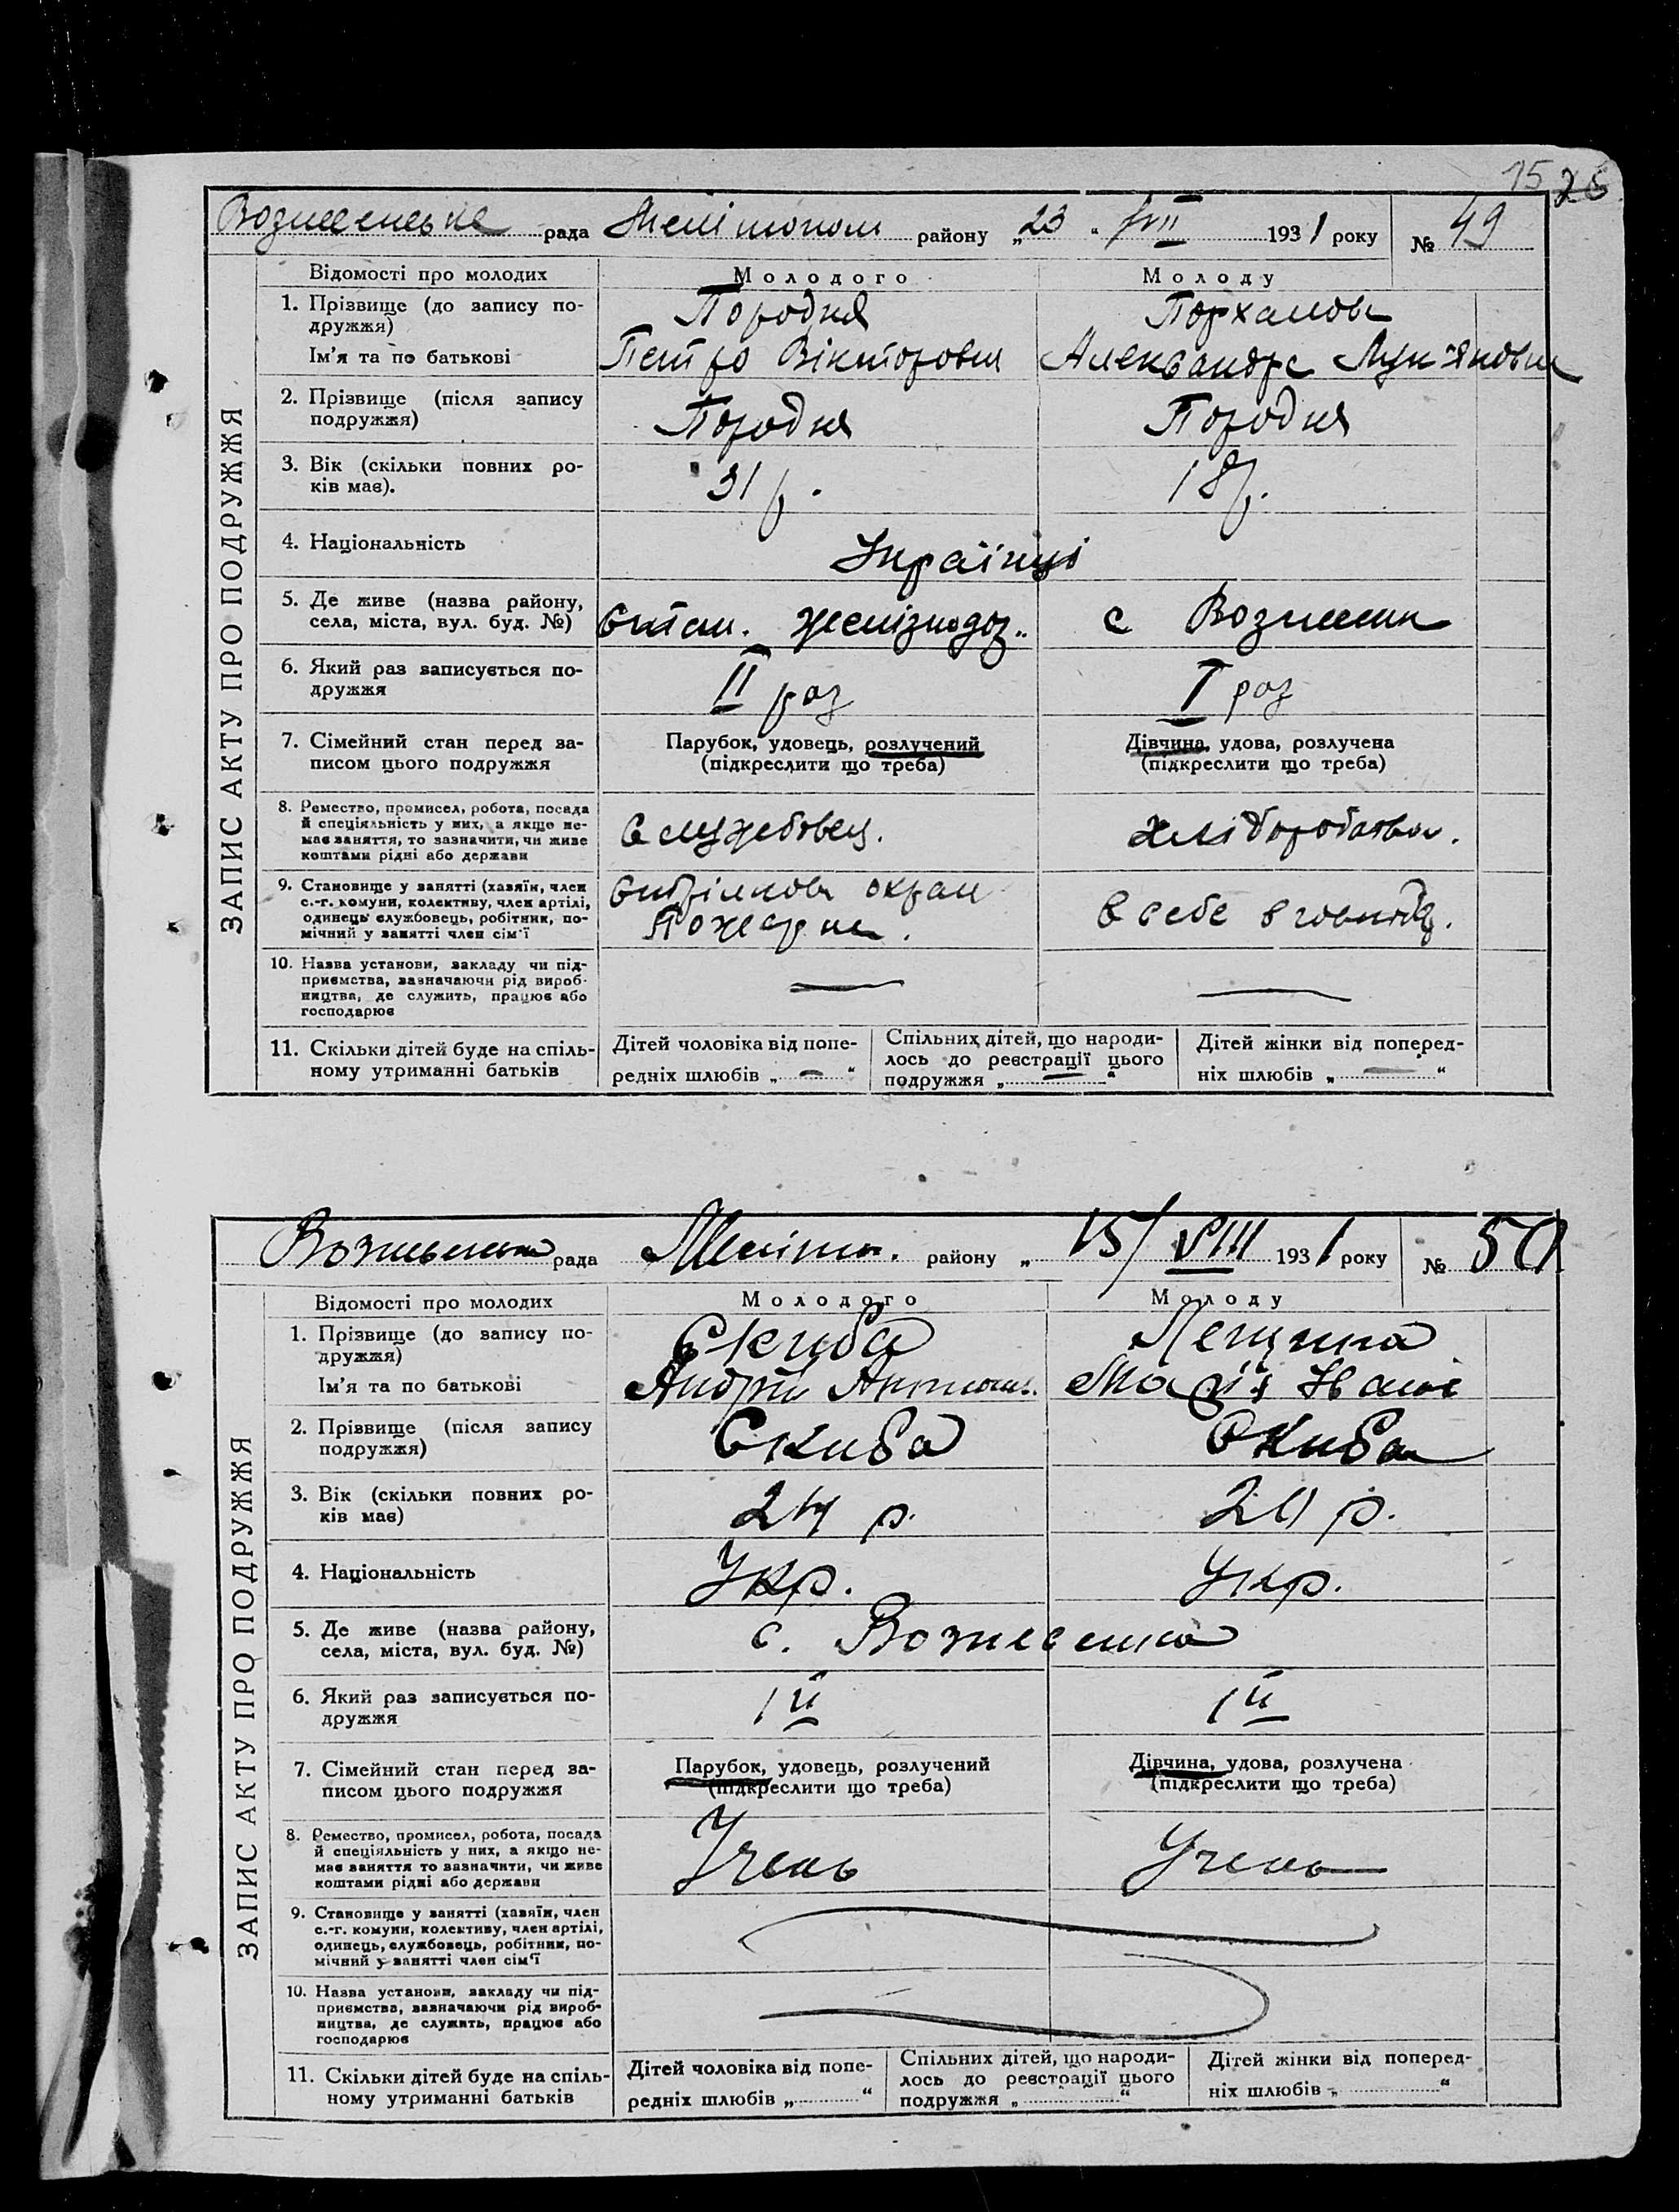 15 26
ЗАПИС АКТУ ПРО ПОДРУЖЖЯ
Вознесенська рада Мелітопол району „23“ VIII 1931 року № 49
Відомості про молодих Молодого Молоду
1. Прізвище (до запису по-
дружжя) Породня Порхамова
Ім'я та по батькові Петро Вікторович Александра Лук'яновна
2. Прізвище (після запису
подружжя) Породня Породня
3. Вік (скільки повних ро-
ків має). 31 р. 18 р.
4. Національність Українці
5. Де живе (назва району,
села, міста, вул. буд. №) Стан. желізнодор. с Вознесен
6. Який раз записується по-
дружжя II раз I раз
7. Сімейний стан перед за-
писом цього подружжя
Парубок, удовець, розлучений
(підкреслити що треба)
Дівчина, удова, розлучена
(підкреслити що треба)
8. Ремество, промисел, робота, посада
й спеціяльність у них, а якщо не-
має заняття, то зазначити, чи живе
коштами рідні або держави
Служебовец. хліборобства.
9. Становище у занятті (хазяїн, член
с.-г. комуни, колективу, член артілі,
одинець службовець, робітник, по-
мічний у занятті член сім'ї
Стрілкова охран
Пожарна. В себе в господ.
10. Назва установи, закладу чи під-
приємства, зазначаючи рід вироб-
ництва, де служить, працює або
господарює
— —
11. Скільки дітей буде на спіль-
ному утриманні батьків
Дітей чоловіка від попе-
редніх шлюбів „ — “
Спільних дітей, що народи-
лось до реєстрації цього
подружжя „ — “
Дітей жінки від поперед-
ніх шлюбів „ — “
ЗАПИС АКТУ ПРО ПОДРУЖЖЯ
Вознесенська рада Меліт. району „ 15/VIII 1931 року № 50
Відомості про молодих Молодого Молоду
1. Прізвище (до запису по-
дружжя) Скиба Лещина
Ім'я та по батькові Андрій Антон. Марія Івані
2. Прізвище (після запису
подружжя) Скиба Скиба
3. Вік (скільки повних ро-
ків має) 24 р. 20 р.
4. Національність Укр. Укр.
5. Де живе (назва району,
села, міста, вул. буд. №) с. Вознесенка
6. Який раз записується по-
дружжя 1й 1й
7. Сімейний стан перед за-
писом цього подружжя
Парубок, удовець, розлучений
(підкреслити що треба)
Дівчина, удова, розлучена
(підкреслити що треба)
8. Ремество, промисел, робота, посада
й спеціяльність у них, а якщо не-
має заняття то зазначити, чи живе
коштами рідні або держави
Учень Учень
9. Становище у занятті (хазяїн, член
с.-г. комуни, колективу, член артілі,
одинець, службовець, робітник, по-
мічний у занятті член сім'ї
10. Назва установи, закладу чи під-
приємства, зазначаючи рід вироб-
ництва, де служить, працює або
господарює
11. Скільки дітей буде на спіль-
ному утриманні батьків
Дітей чоловіка від попе-
редніх шлюбів „ “
Спільних дітей, що народи-
лось до реєстрації цього
подружжя „ “
Дітей жінки від поперед-
ніх шлюбів „ “